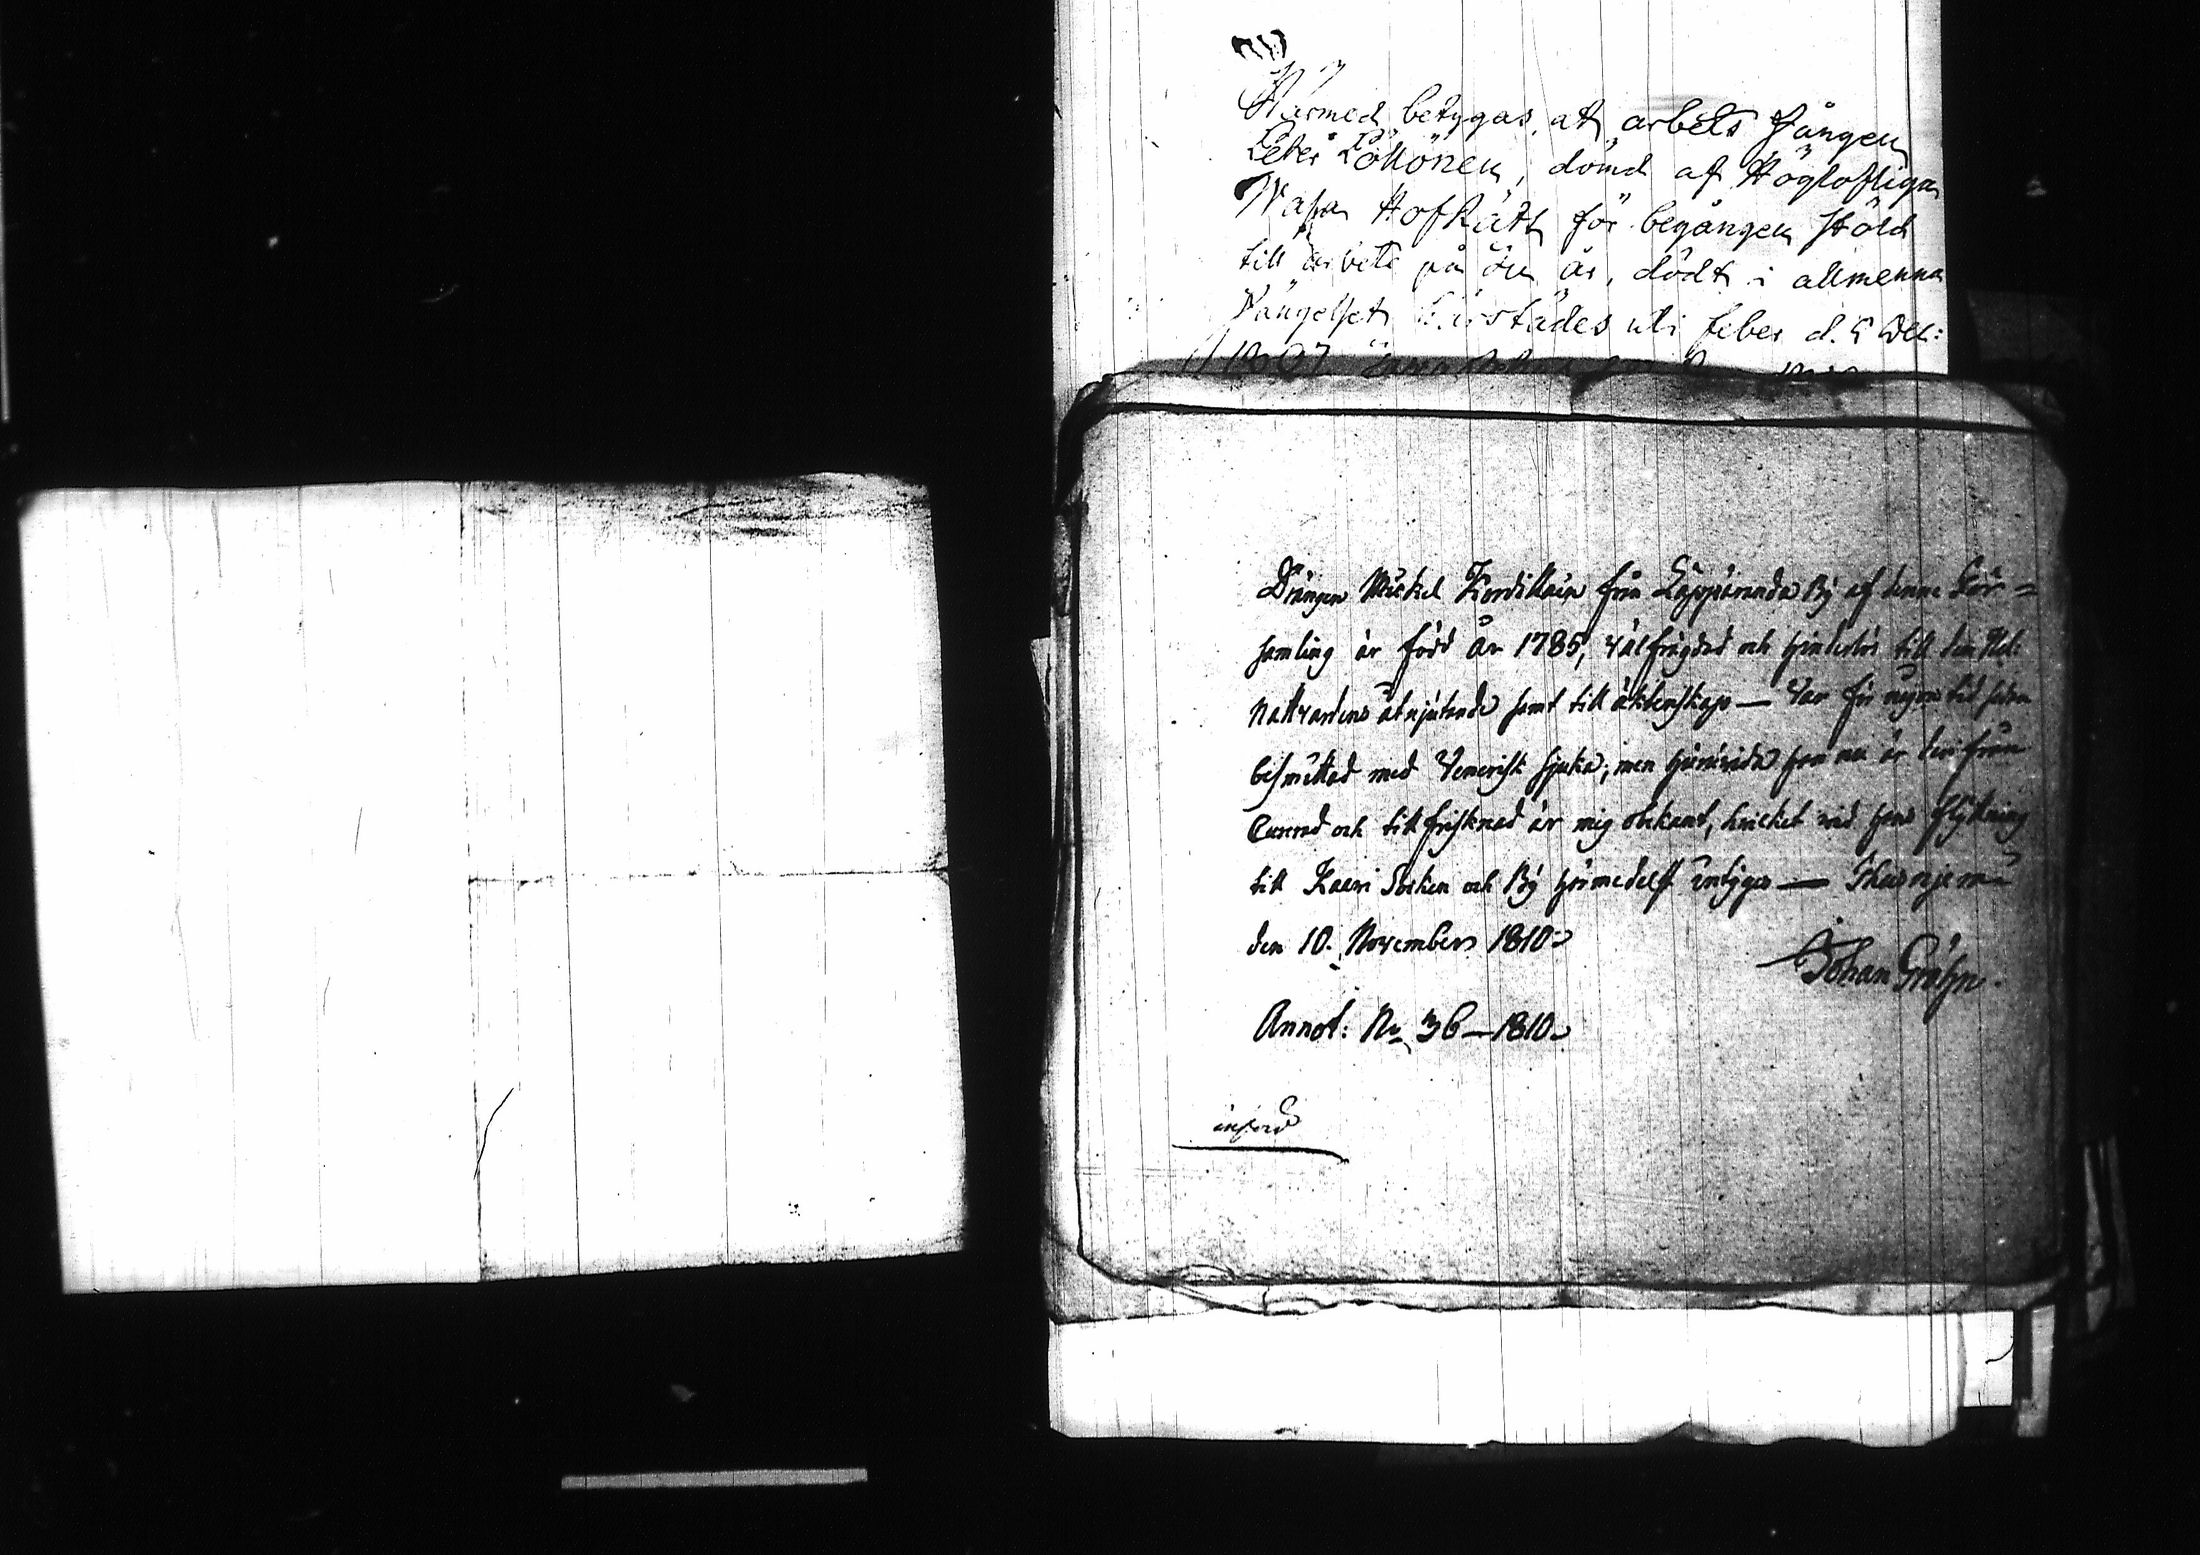 Härmed betygas, at arbets fången
Peter Pöllönen, dömd af Höglofliga
Wasa HofRätt för begången stöld
till arbete på ön år, dödt i allmenna
Fängelset härstädes uti feber d. 5 Dec:
1807
Drängen Mickel Kordikain från Lappäranda By af denne För=
samling är född år 1785, välfrägdad och hinderlös till den Hel:
Nattvardens åtnjutande samt till äktenskap — Var för någon tid sedan
besmittad med Venerisk sjuka; men huruvida han nu är derifrån
Curerad och tillfrisknad är mig obekant, hvilket vid hans flyttning
till Kaavi Socken och By härmedelst intygas —
den 10. November 1810.
Johan Grahn.
Annot: No 36—1810.
införd